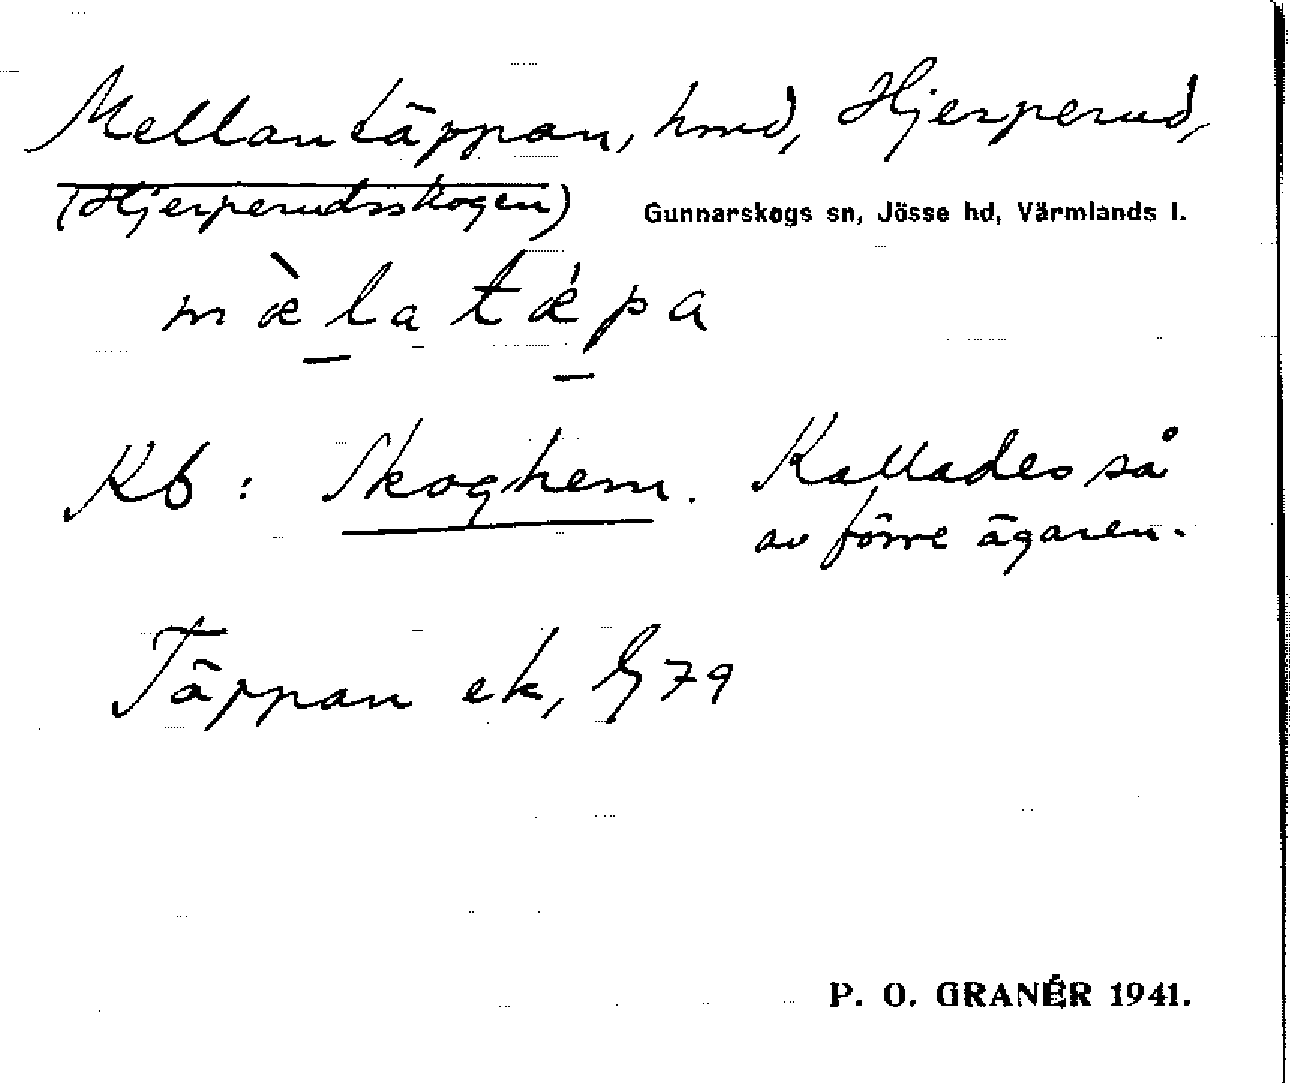 Mellantäppan, hmd, Hjerperud,
(Hjerperudsskogen) Gunnarskogs sn, Jösse hd, Värmlands l.
mæ̀la tǽpa
Kb: Skoghem. Kallades så
av förre ägaren.
Täppan ek, G 79
P. O. GRANÉR 1941.